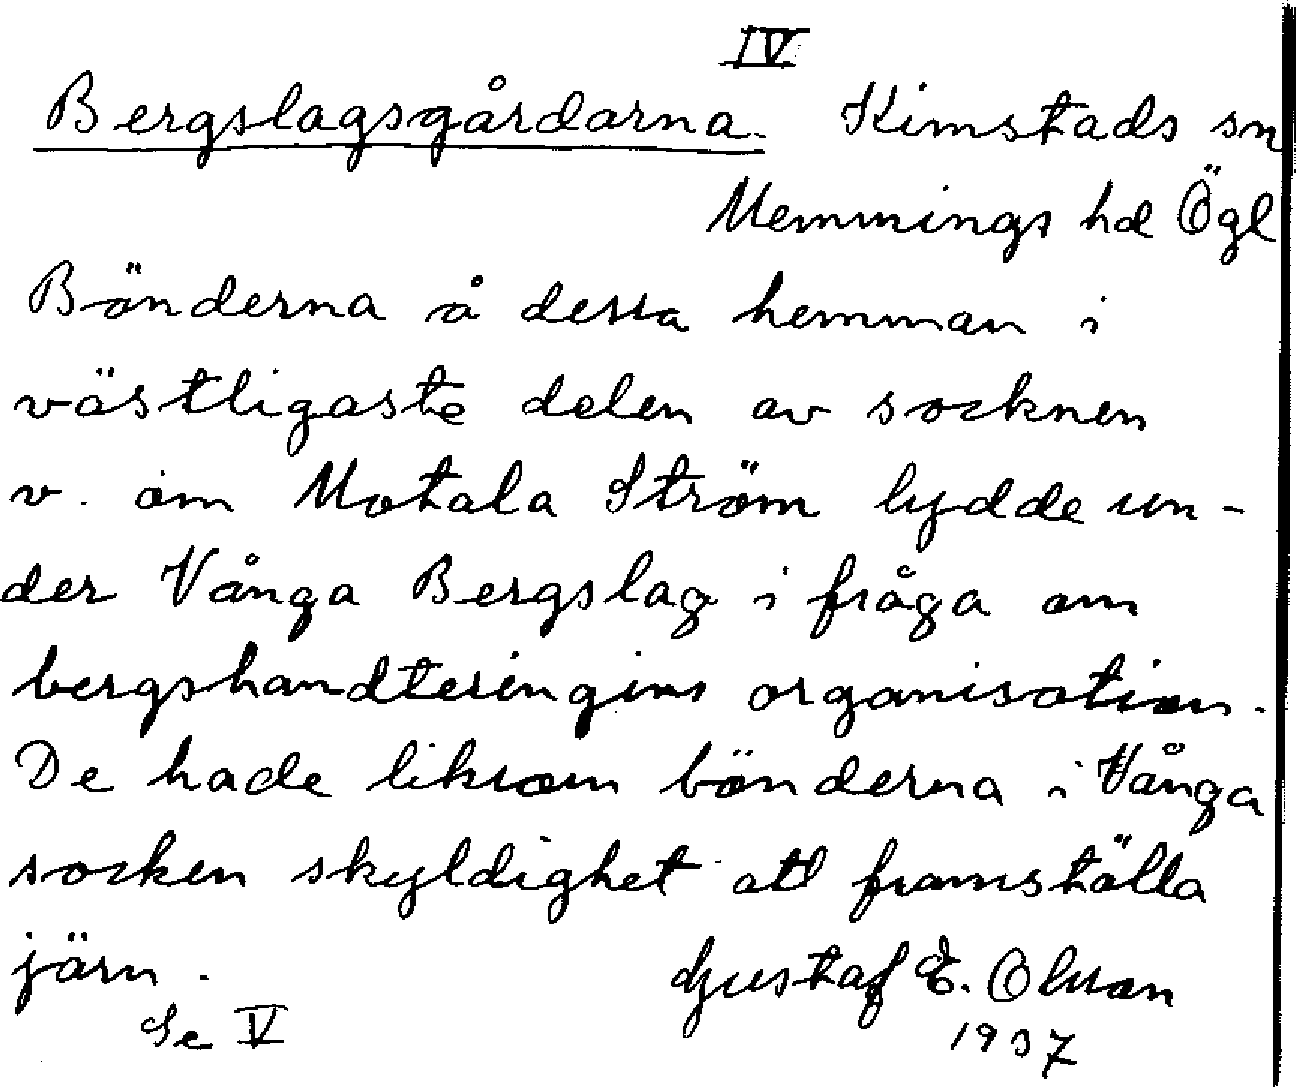 IV
Bergslagsgårdarna. Kimstads sn
Memmings hd Ögl
Bönderna å dessa hemman i
västligaste delen av socknen
v. om Motala Ström lydde un-
der Vånga Bergslag i fråga om
bergshandteringens organisation.
De hade liksom bönderna i Vånga
socken skyldighet att framställa
järn.
Gustaf E. Olsson
Se V
1937